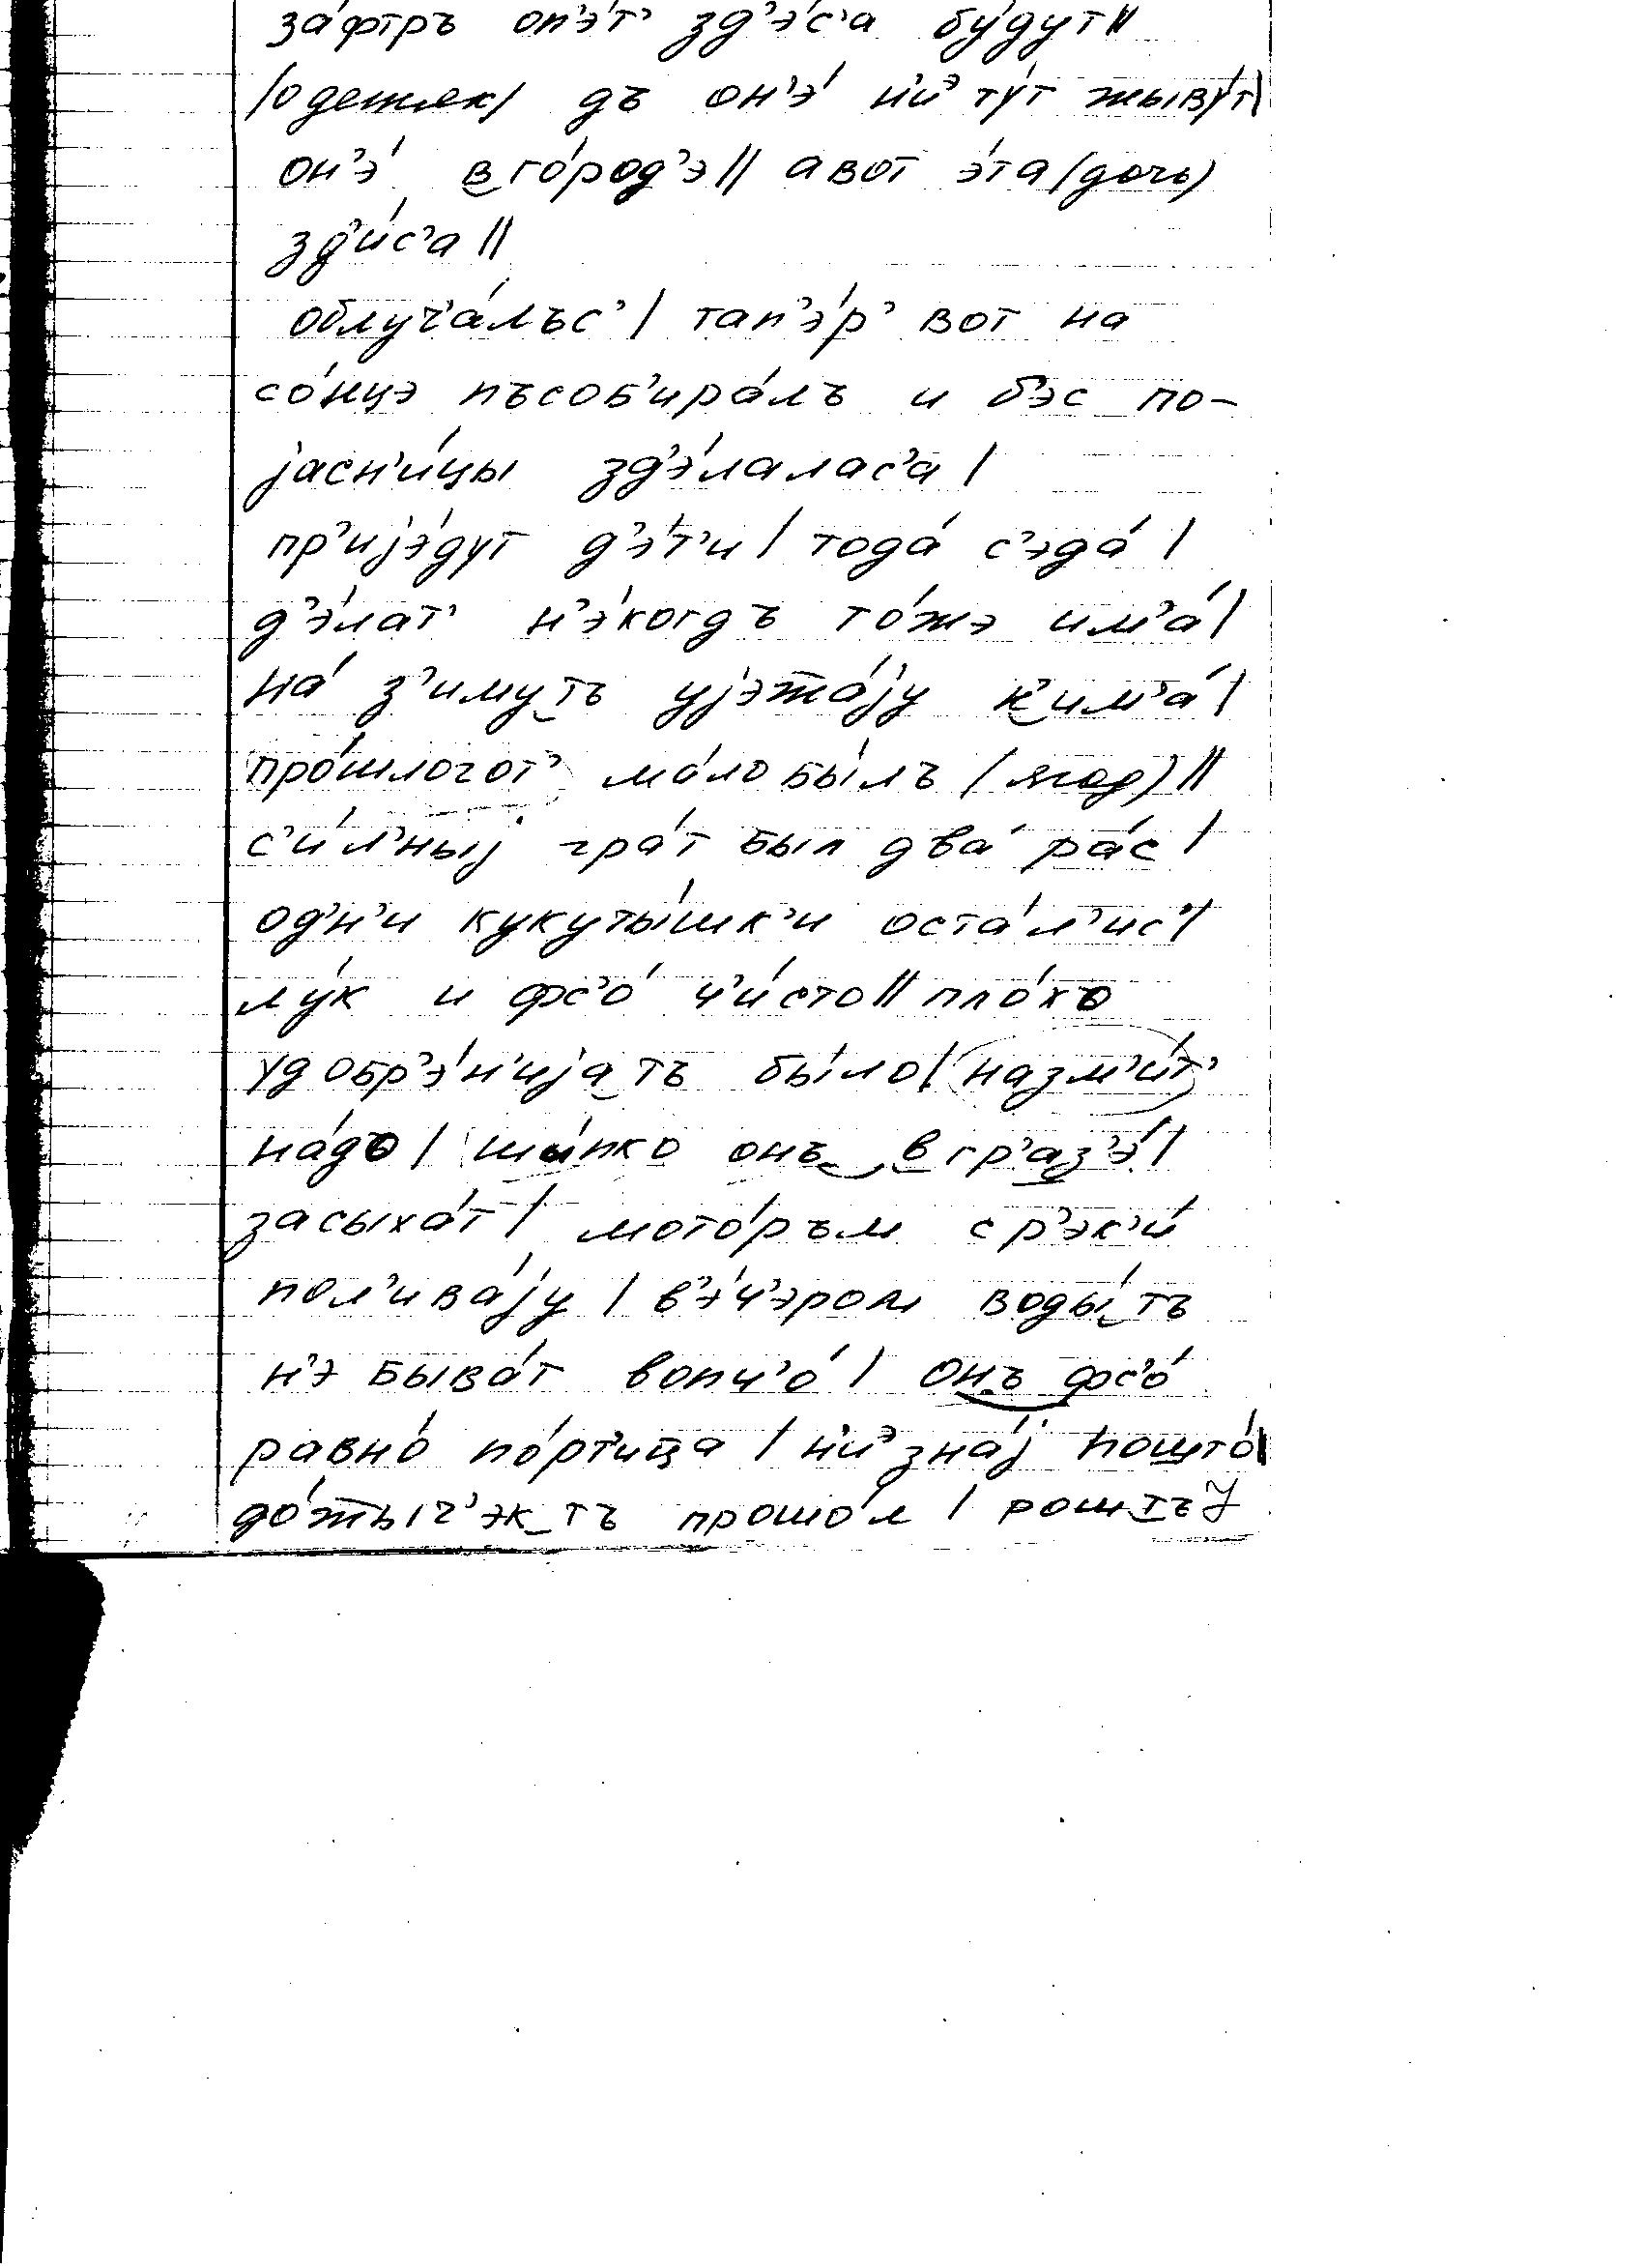 за́фтръ оп'э́т' зд'э́с'а бу́дут||
/о детях/ дъ он'э́ н'иэ ту́т жыву́т|
он'э́ в го́род'э|| а вот э́та (дочь)
зд'и́с'а ||
облуч'а́лъс' | тап'э́р' вот на
со́нцэ пъсоб'ира́лъ и б'эс по-
јасн'и́цы зд'э́лалас'а |
пр'ијэ́дут д'э́т'и | тода́ с'эда́ |
д'э́лат' н'э́когдъ то́жэ им'а́ |
на́ з'иму тъ ујэжа́ју к'им'а́ |
про́шлогот' ма́ло бы́лъ (ягод) ||
с'и́л'ныј гра́т был два́ ра́с |
од'н'и кукуты́шк'и оста́л'ис' |
лу́к и фс'о́ ч'и́сто|| пло́хъ
удобр'э́н'ија тъ бы́ло | назм'и́т'
на́дъ | шы́пко онъ в гр'аз'э́ |
засыха́т | мото́ръм с р'эк'и́
пол'ива́ју | в'э́ч'эром воды́ тъ
н'э быва́т вопч'о́ | онъ фс'о́
равно́ по́рт'ица | н'иэ зна́ј пошто́ |
до́жыч'эк тъ прошо́л | рош тъ У